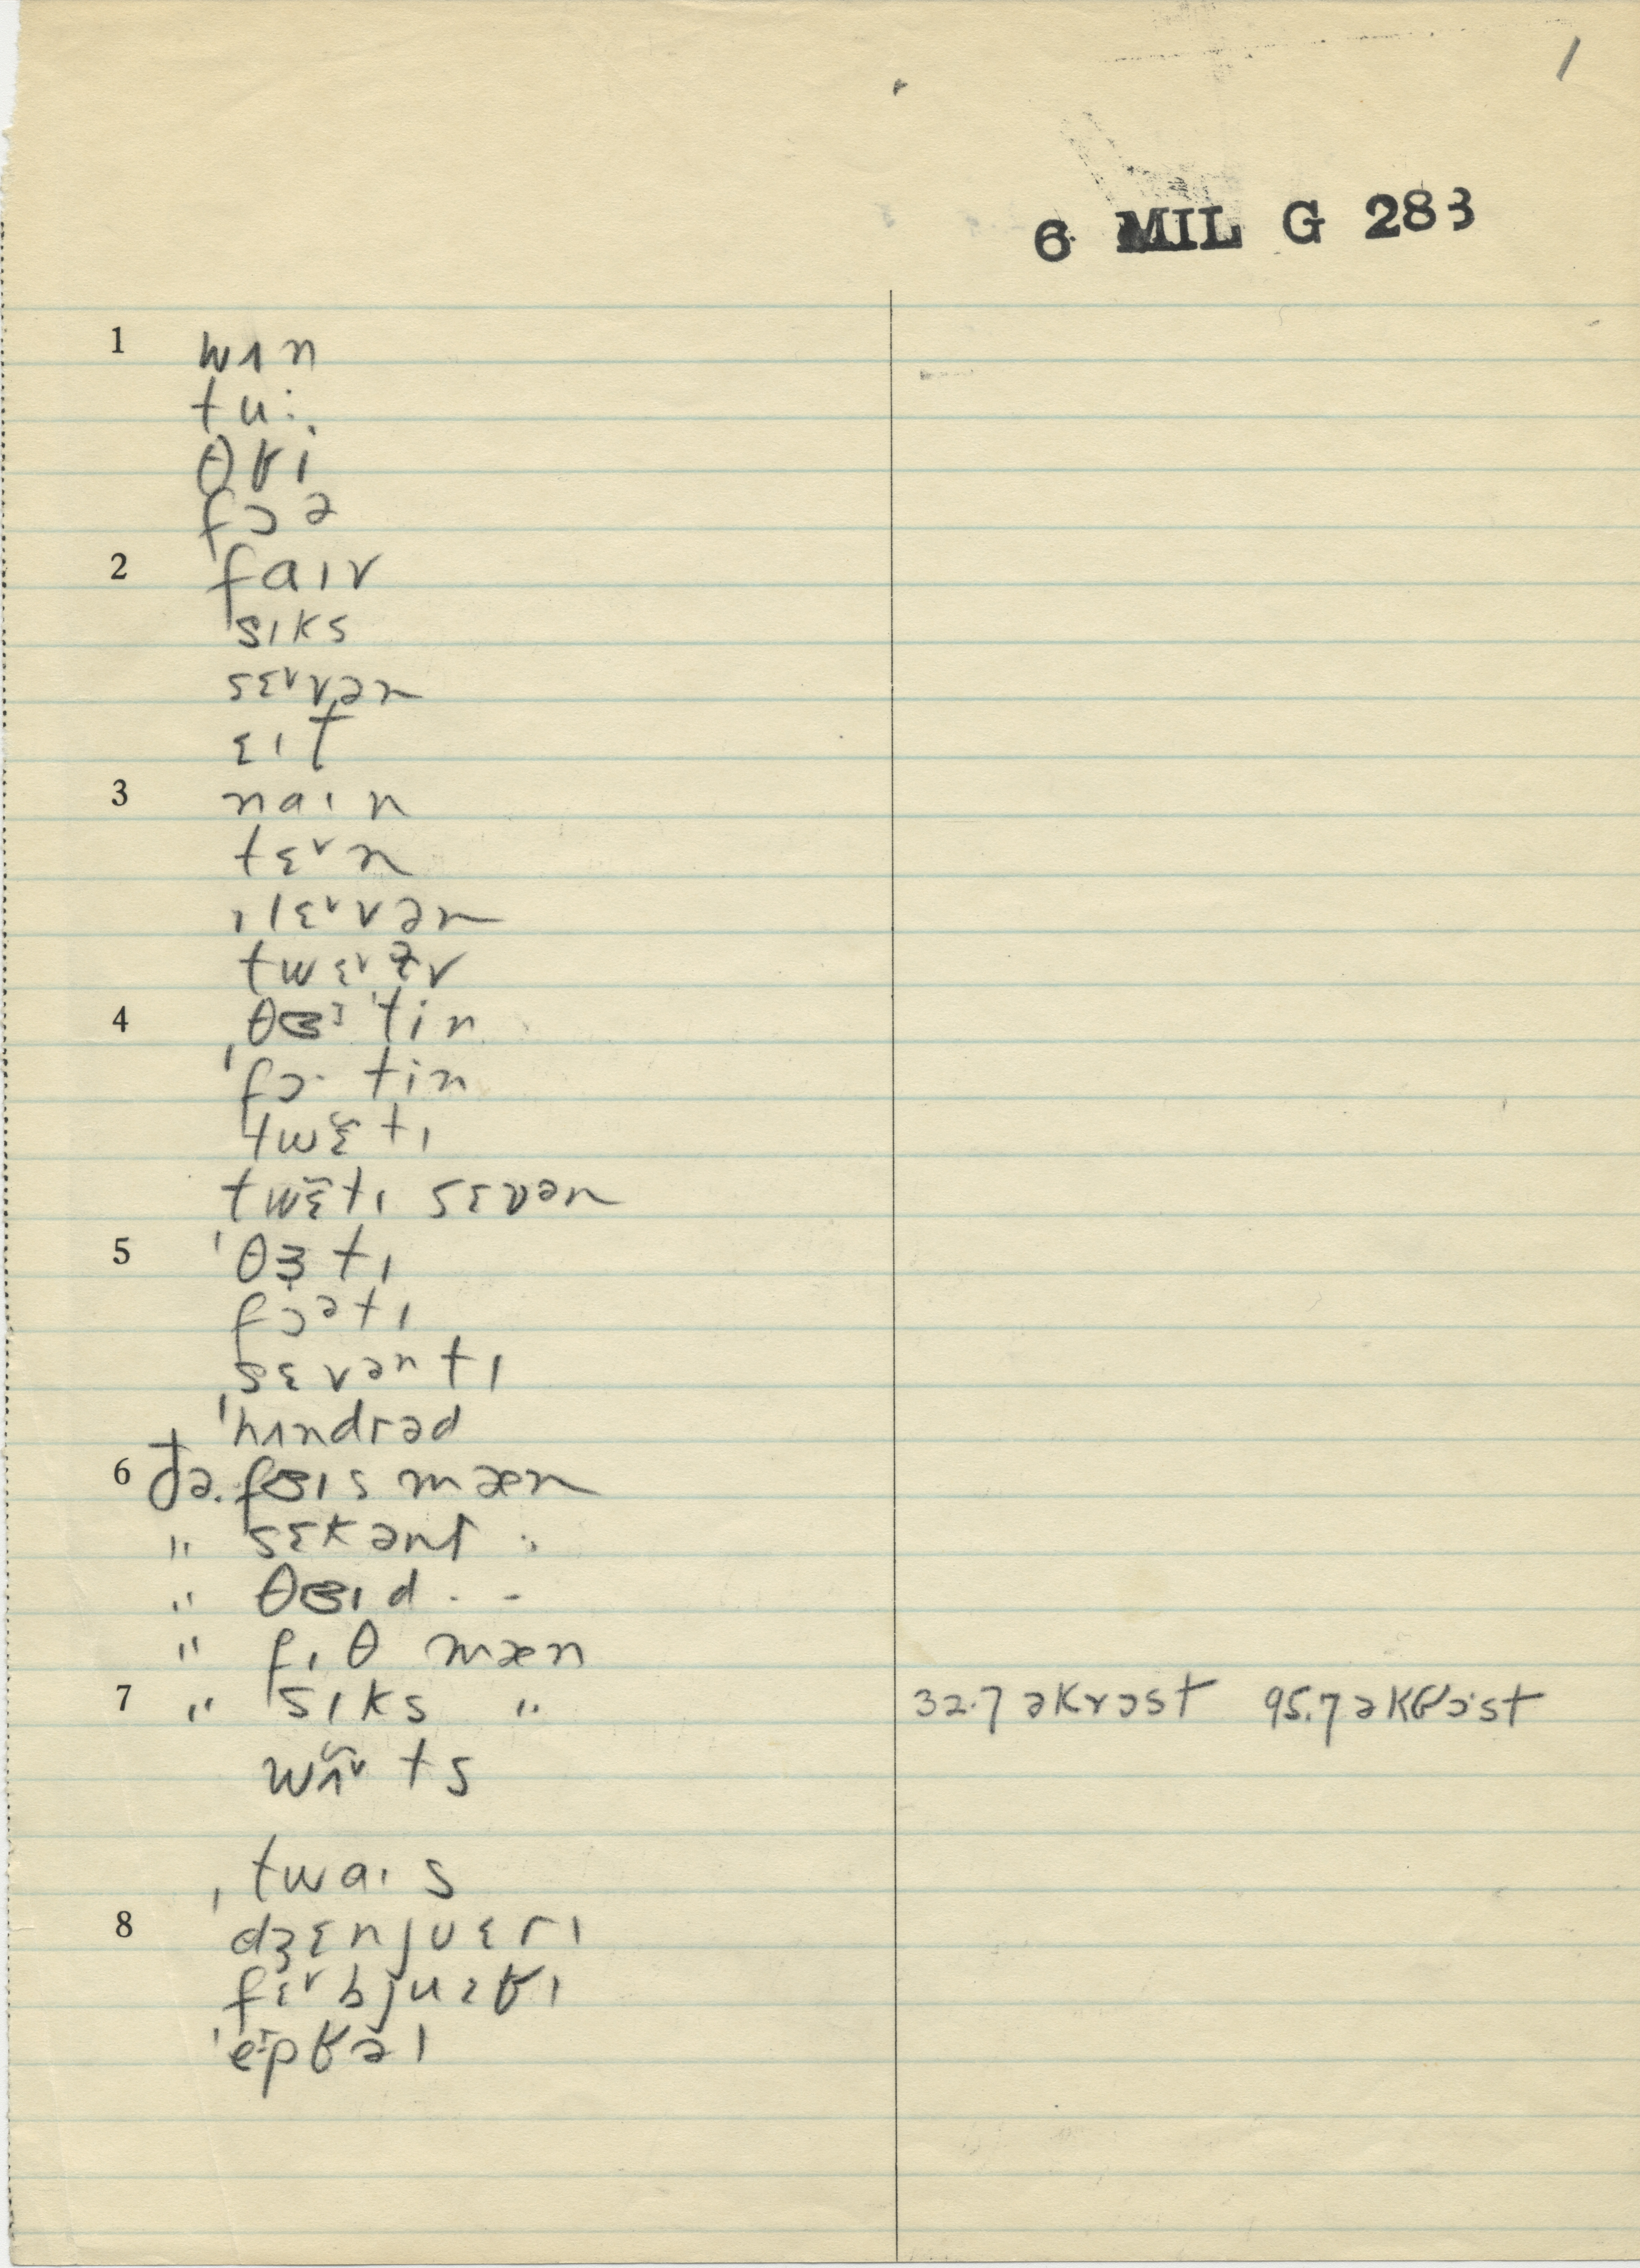 1
6 MIL G 283
1 wʌn
tu:
θɾi
fɔə
2 faɪv
sɪks
sɛᵛvən
ɛɪt
3 naɪn
tɛᵛn
ɪlɛᵛvən
twɛᵛɫv
4 ˈtin
ˈfɔ· tin
twɛ̃tɪ
twɛ̃tɪ sɛvən
5 ˈθɜtɪ
fɔətɪ
sɛvəntɪ
ˈhʌndrəd
6 ðə fɜɪs mæn
" sɛkənt "
" θɜɪd " "
" fɪθ mæn
7 " sɪks " 32.7 əkrɔst 95.7 əkɾɔst
wʌ̃ᵛts
twaɪs
8 ˈdʒɛnjʊɛrɪ
fɛᵛbjuɛɾɪ
ˈeɪpɾəl